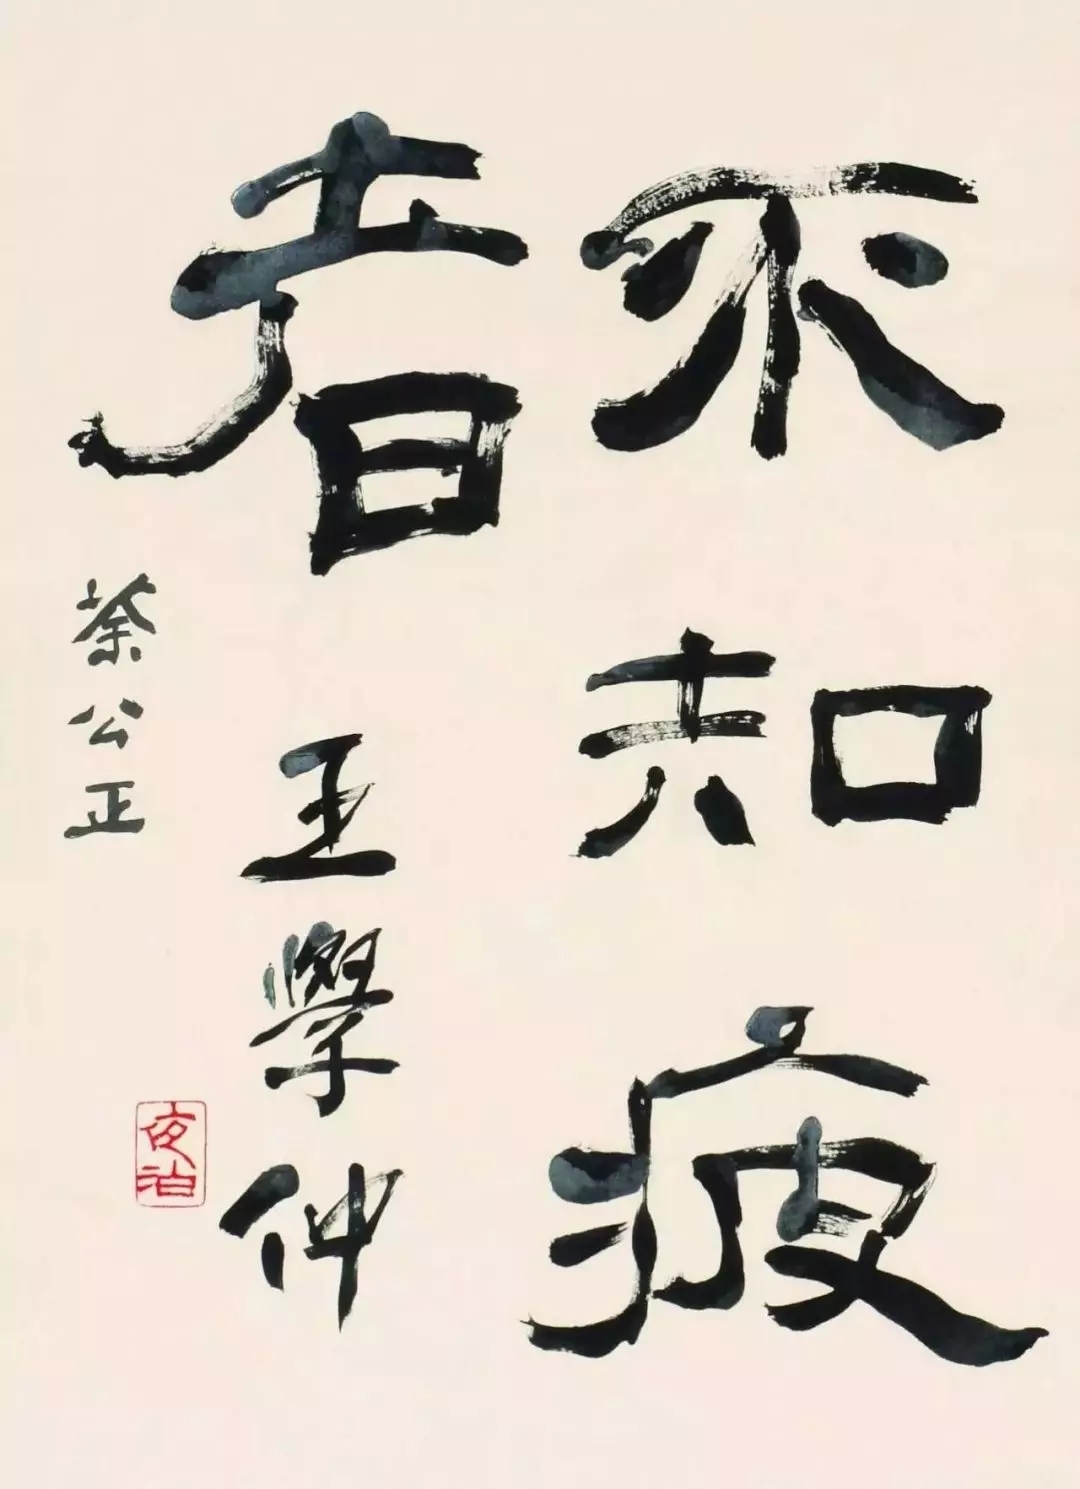 不知疲
者
王學仲
茶公正
夜泊